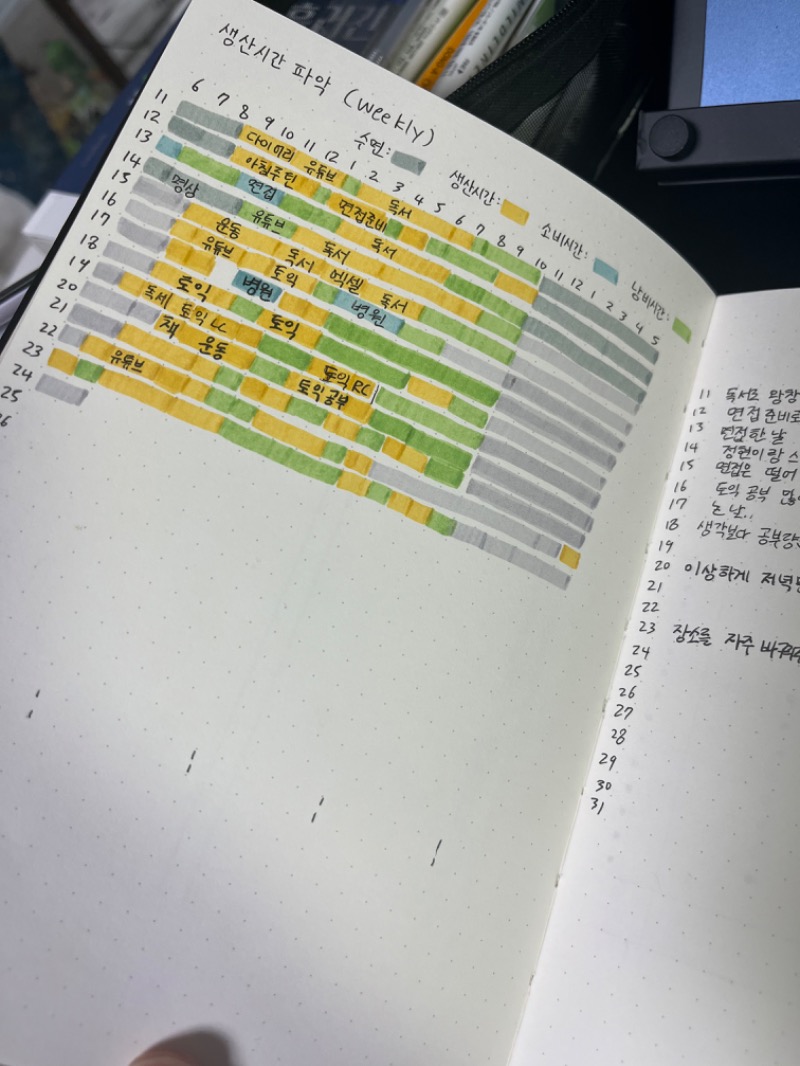 생산시간 파악 (weekly)
수면:
생산시간:
소비시간:
낭비시간:
6 7 8 9 10 11 12 1 2 3 4 5 6 7 8 9 10 11 12 1 2 3 4 5
11
12 다이어리 유튜브 독서
13 아침루틴
14 면접 면접준비
15 명상 유튜브 독서
16 운동 독서
17 유튜브 독서 엑셀 독서
18 토익
19 병원 병원
20 토익
21 독서 토익 LC 토익
22 책 운동
23 토익 RC
24 유튜브 토익공부
25
26
11 독서로 왕창
12 면접 준비로
13 면접한 날
14 정현이랑 스
15 면접은 떨어
16 토익 공부 많이
17 논 날..
18 생각보다 공부량
19
20 이상하게 저녁
21
22
23 장소를 자주 바꿔
24
25
26
27
28
29
30
31